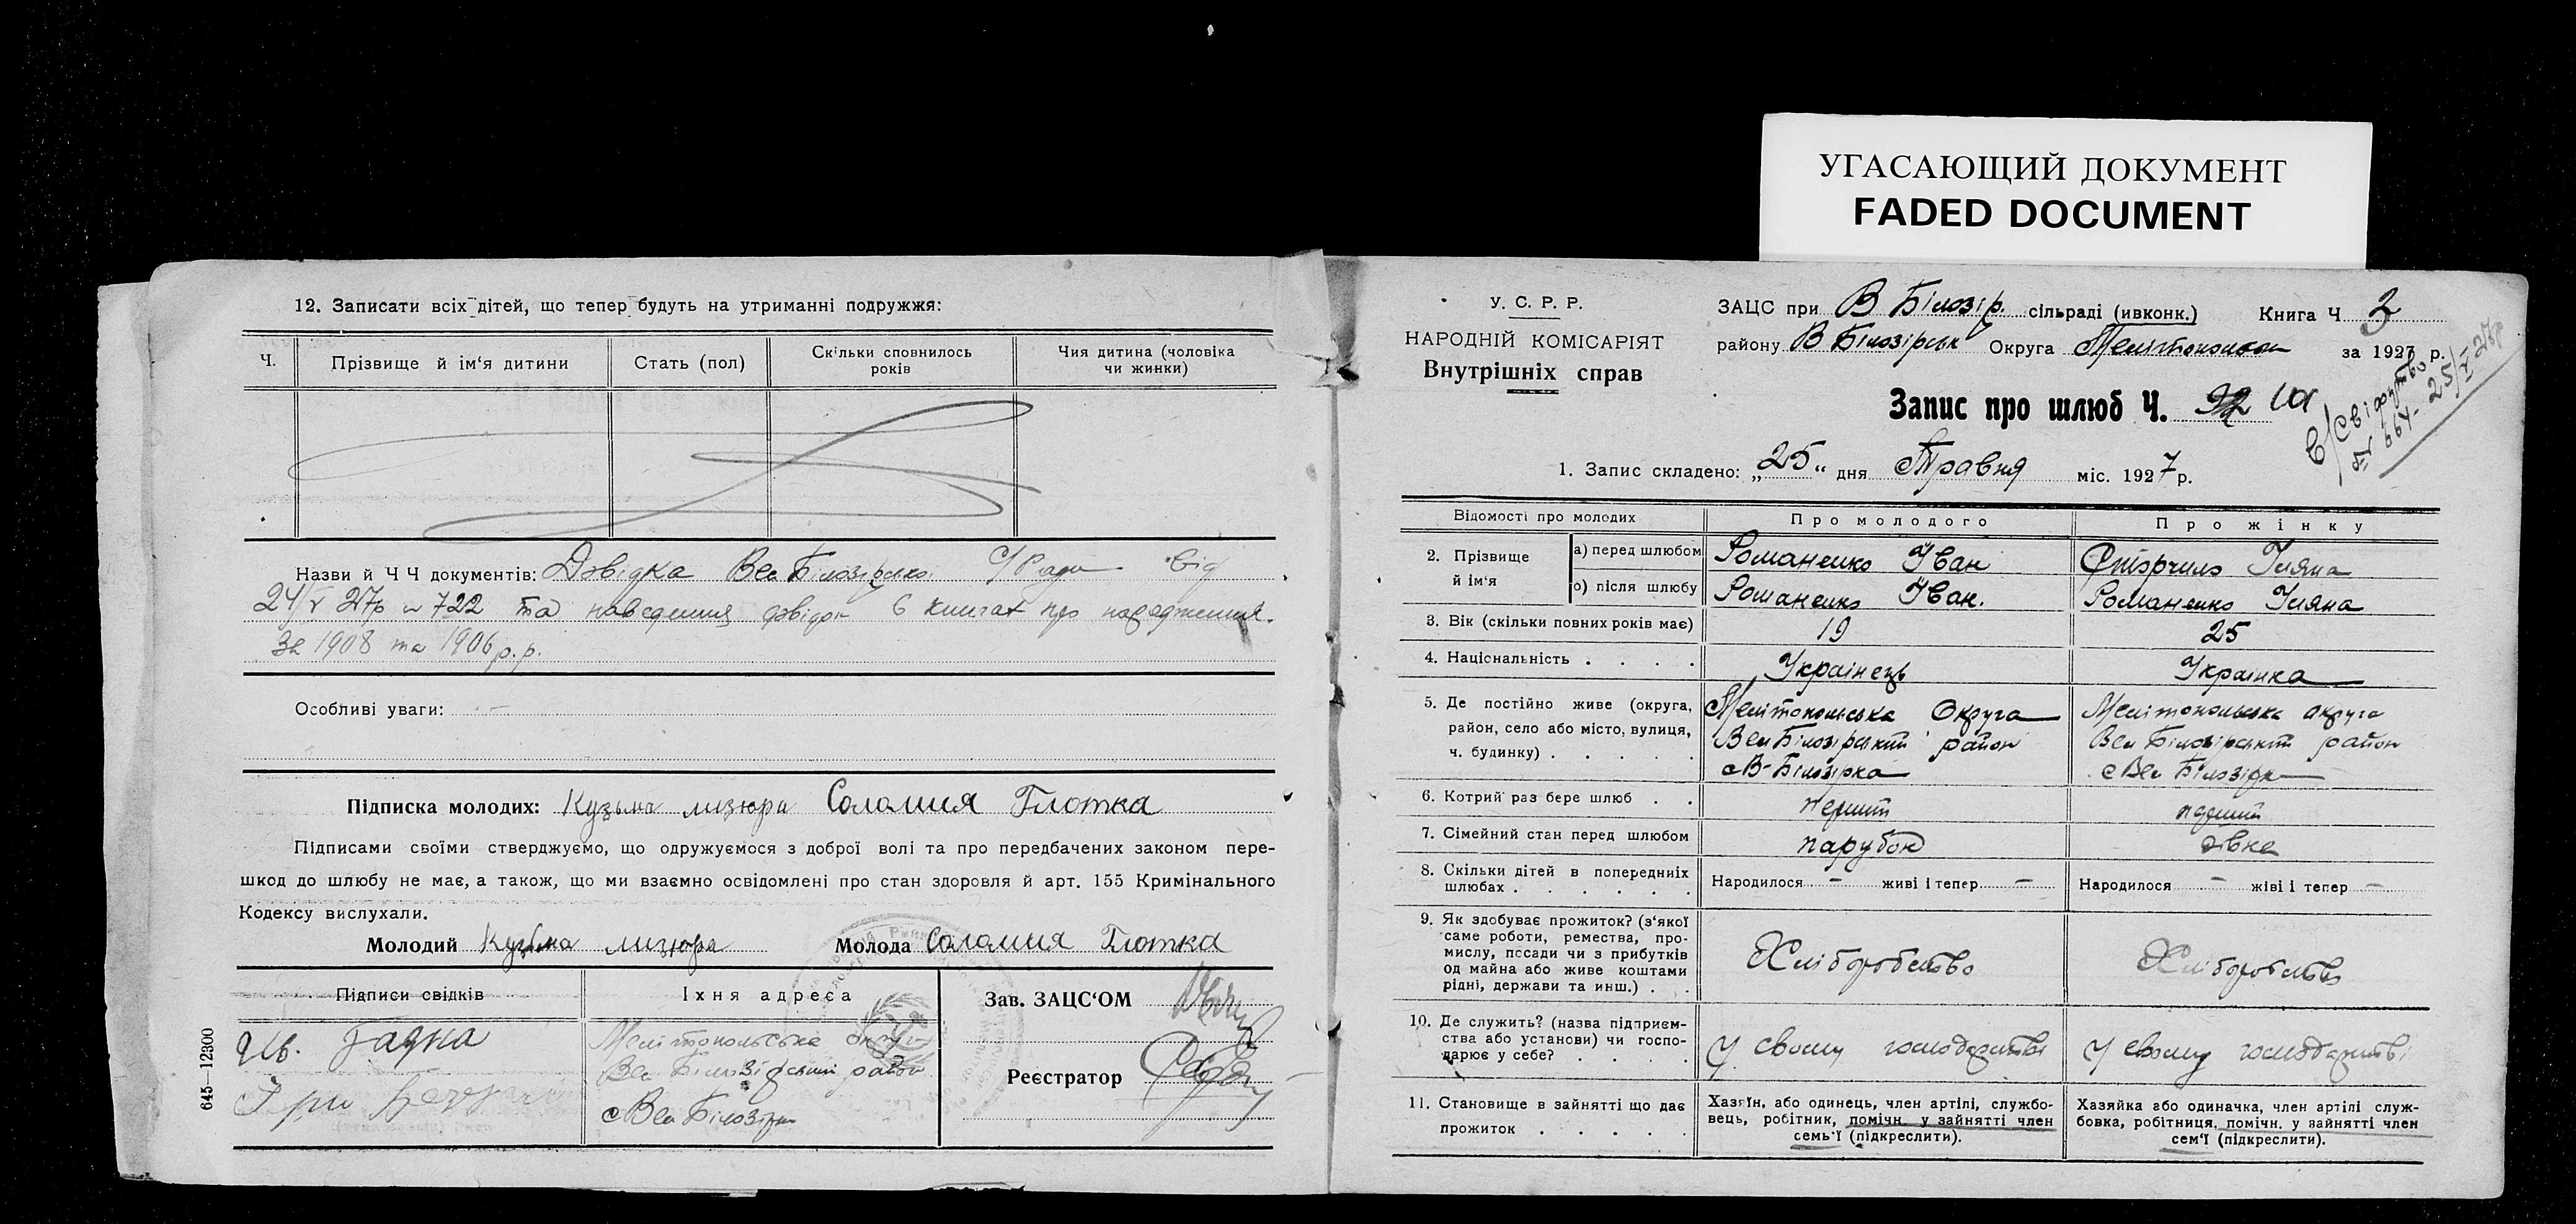 УГАСАЮЩИЙ ДОКУМЕНТ
FADED DOCUMENT
12. Записати всіх дітей, що тепер будуть на утриманні подружжя:
Ч.
Прізвище й ім‘я дитини
Стать (пол)
Скільки сповнилось
років
Чия дитина (чоловіка
чи жинки)
Назви й Ч Ч документів: Довідка Вел Білозірсько С/Ради від
24/V 27р № 722 та наведення довідок в книгах про народження.
за 1908 та 1906 р.р.
Особливі уваги: —
Підписка молодих: Кузьма Мизюра Соломия Глотка
Підписами своїми стверджуємо, що одружуємося з доброї волі та про передбачених законом пере-
шкод до шлюбу не має, а також, що ми взаємно освідомлені про стан здоровля й арт. 155 Кримінального
Кодексу вислухали.
Молодий Кузьма Мизюра Молода Соломия Глотка
Підписи свідків
Їхня адреса
Ив. Гаяка
Гри
Мелітопольська округа
Вел Білозірський район
с Вел Білозірка
Зав. ЗАЦС‘ОМ
Реєстратор
645—12300
У. С. Р. Р.
НАРОДНІЙ КОМІСАРІЯТ
Внутрішніх справ
ЗАЦС при В Білозір. сільраді (ивконк.) Книга Ч 3
району В Білозірськ Округа Мелітопольськ за 1927 р.
Запис про шлюб Ч. 92
С/Свідоцтво
№ 664 - 25/V-27р
1. Запис складено: „25“ дня Травня міс. 1927 р.
Відомості про молодих
Про молодого
Про жінку
2. Прізвище
й ім‘я
а) перед шлюбом Романенко Іван Сторчило Уляна
о) після шлюбу Романенко Іван. Романенко Уляна
3. Вік (скільки повних років має) 19 25
4. Національність . . . . Українець Українка
5. Де постійно живе (округа,
район, село або місто, вулиця,
ч. будинку) . . . . .
Мелітопольська Округа
Вел Білозірський район
с В-Білозірка
Мелітопольська округа
Вел Білозірський район
с Вел Білозірка
6. Котрий раз бере шлюб . . перший перший
7. Сімейний стан перед шлюбом парубок дівка
8. Скільки дітей в попередниіх
шлюбах . . . . . .
Народилося — живі і тепер —
Народилося — жіві і тепер —
9. Як здобуває прожиток? (з‘якої
саме роботи, ремества, про-
мислу, песади чи з прибутків
од майна або живе коштами
рідні, держави та инш.) . .
Хліборобство
Хліборобство
10. Де служить? (назва підприєм-
ства або установи) чи госпо-
дарює у себе? . . . .
У свому господарстві
У свому господарстві
11. Становище в зайнятті що дає
прожиток . . . . .
Хазяїн, або одинець, член артілі, службо-
вець, робітник, помічн. у зайнятті член
семь‘ї (підкреслити).
Хазяйка або одиначка, член артілі служ-
бовка, робітниця, помічн. у зайнятті член
сем‘ї (підкреслити).